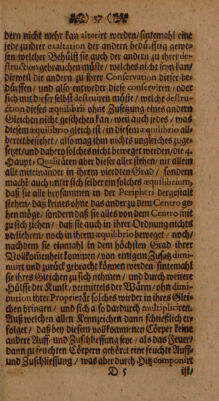 37
dern nicht mehr kan alterirt werden/ sintemahl eine
jede zu ihrer exaltation der andern bedürfftig gewe-
sen welcher Behülff sie auch der andern zu ihrer des-
truction gebrauchen müste/ welches nicht seyn kan/
dieweil die andern zu ihrer Conservation dieser be-
dürfften/ und also entweder diese conserviren/ oder
sich mit dieser selbst destruiren müste/ welche destru-
ction dieses æquilibrio ohne Zusetzung eines andern
Gleichen nicht geschehen kan/ weil auch jedes/ was
diesem æquilibrio gleich ist/ in diesem æquilibrio all-
bereit bestehet/ also mag ihm nichts ungleiches zuge-
setzet/ und daher solches nicht beweget werden/ die 4.
Haupt-Qualitäten aber dieser aller stehen/ mit allein
alle miteinander in ihrem vierdten Grad/ sondern
macht auch unter sich selber ein solches æquilibrium,
daß sie alle beysammen in der Peripherі dergestalt
stehen/ daß keines ohne das ander zu dem Centro ge-
hen möge/ sondern daß sie alles von dem Centro mit
zu sich ziehen/ daß sie auch in ihrer Ordnung nichts
versehren/ noch in ihrem æquilibrio beweget/ noch/
nachdem sie einmahl in dem höchsten Grad ihrer
Vollkom̃enheit kommen/ von einigem Zusatz dimi-
nuirt und zurück gebracht können werden/ sintemahl
sie ihres Gleichen zu sich nehmen/ und durch weitere
Hülffe der Kunst/ vermittels der Wärm/ ohn dimi-
nution ihrer Proprietät solches wieder in ihres Glei-
chen bringen/ und sich also dardurch multipliciren.
Auß welchen allen Kennzeichen dann schließlich er-
folget/ daß bey diesem vollkommenen Cörper keine
andere Auff- und Zuschliessung seye/ als das Feuer/
dann zu feuchten Cörpern gehört eine feuchte Auff-
und Zuschliessung/ was aber durch Hitz componirt
D 5 ist/